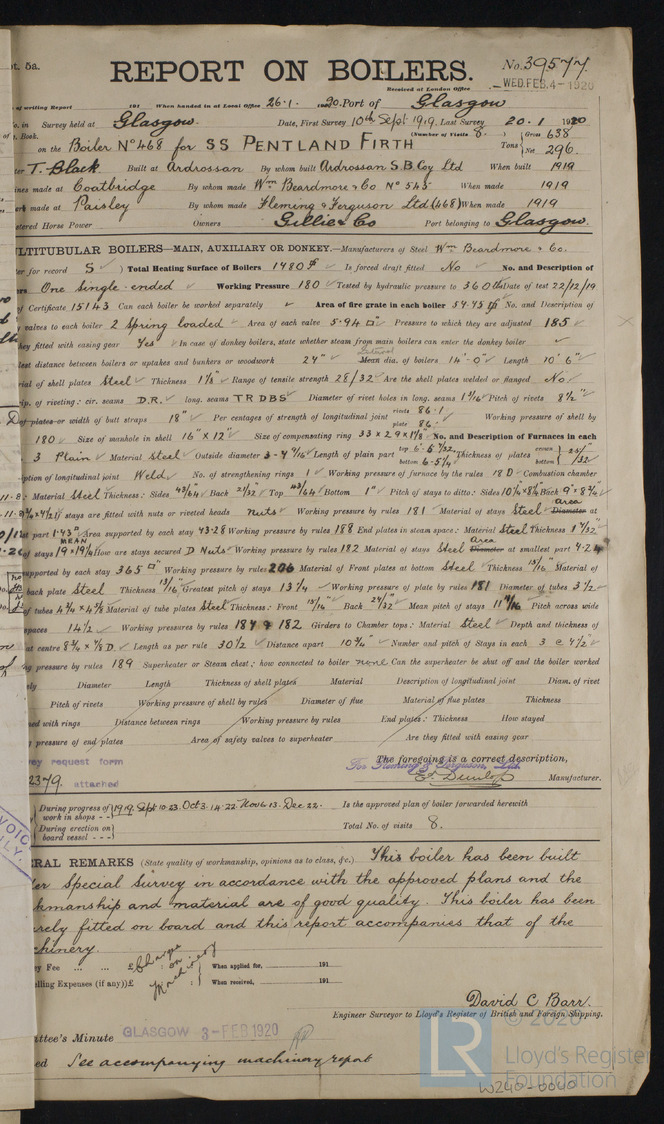 pt. 5a.
REPORT ON BOILERS.
No. 39577.
Received at London Office
WED. FEB. 4 - 1920
of writing Report 191 When handed in at Local Office 26.1.1920. Port of Glasgow
No. in Survey held at Glasgow. Date, First Survey 10th Sept 1919. Last Survey 20.1 1920
Book. (Number of Visits 8. ) Gross 638
on the Boiler No 468 for SS PENTLAND FIRTH Tons Net 296.
T. Black Built at Ardrossan By whom built Ardrossan S.B. Coy Ltd When built 1919
ines made at Coatbridge By whom made Wm Beardmore & Co No 545 When made 1919
made at Paisley By whom made Fleming & Ferguson Ltd (468) When made 1919
stered Horse Power Owners Gillie & Co Port belonging to Glasgow.
ULTITUBULAR BOILERS—MAIN, AUXILIARY OR DONKEY.—Manufacturers of Steel Wm Beardmore & Co.
er for record S ) Total Heating Surface of Boilers 1480 Is forced draft fitted No No. and Description of
One single-ended Working Pressure 180 Tested by hydraulic pressure to 360 lbs Date of test 22/12/19
of Certificate 15143 Can each boiler be worked separately Area of fire grate in each boiler 54.45 No. and Description of
valves to each boiler 2 Spring loaded Area of each valve 5.94 □" Pressure to which they are adjusted 185
hey fitted with easing gear Yes In case of donkey boilers, state whether steam from main boilers can enter the donkey boiler
lest distance between boilers or uptakes and bunkers or woodwork 24" Mean dia. of boilers 14'-0" Length 10' 6"
rial of shell plates Steel Thickness 1 1/8" Range of tensile strength 28/32 Are the shell plates welded or flanged No
rip. of riveting: cir. seams D.R. long. seams T R D B S Diameter of rivet holes in long. seams 1 3/16 Pitch of rivets 8 1/2"
of plates or width of butt straps 18" Per centages of strength of longitudinal joint rivets 86.1 plate 86. Working pressure of shell by
180 Size of manhole in shell 16" x 12" Size of compensating ring 33 x 29 x 1 1/8" No. and Description of Furnaces in each
3 Plain Material Steel Outside diameter Length of plain part top bottom Thickness of plates crown bottom
ption of longitudinal joint Weld No. of strengthening rings 1 Working pressure of furnace by the rules 180 Combustion chamber
Material Steel Thickness: Sides 43/64 Back 21/32 Top 43/64 Bottom 1" Pitch of stays to ditto: Sides Back
stays are fitted with nuts or riveted heads nuts Working pressure by rules 181 Material of stays Steel Area Diameter at
st part 1.43 Area supported by each stay 43.28 Working pressure by rules 188 End plates in steam space: Material Steel Thickness
MEAN
of stays 19 x 19 1/4 How are stays secured D Nuts Working pressure by rules 182 Material of stays Steel Area Diameter at smallest part
upported by each stay 365 □" Working pressure by rules 206 Material of Front plates at bottom Steel Thickness 15/16" Material of
back plate Steel Thickness 13/16" Greatest pitch of stays 13 1/4 Working pressure of plate by rules 181 Diameter of tubes 3 1/2
of tubes 4 3/4 x 4 5/8 Material of tube plates Steel Thickness: Front 15/16" Back 24/32" Mean pitch of stays Pitch across wide
spaces 14 1/2 Working pressures by rules 184 & 182 Girders to Chamber tops: Material Steel Depth and thickness of
at centre 8 3/4 x 7/8 D. Length as per rule 30 1/2 Distance apart 10 3/4 Number and pitch of Stays in each 3 @ 7 1/2"
ng pressure by rules 189 Superheater or Steam chest; how connected to boiler none Can the superheater be shut off and the boiler worked
ely Diameter Length Thickness of shell plates Material Description of longitudinal joint Diam. of rivet
Pitch of rivets Working pressure of shell by rules Diameter of flue Material of flue plates Thickness
ned with rings Distance between rings Working pressure by rules End plates: Thickness How stayed
g pressure of end plates Area of safety valves to superheater Are they fitted with easing gear
vey request form
2379. attached
The foregoing is a correct description,
For Fleming & Ferguson, Ltd.
E. Dunlop Manufacturer.
During progress of work in shops - - 1919. Sept 10.23. Oct 3.14.22. Nov 6.13. Dec 22. Is the approved plan of boiler forwarded herewith
During erection on board vessel - - - Total No. of visits 8.
ERAL REMARKS (State quality of workmanship, opinions as to class, &c.) This boiler has been built
er Special Survey in accordance with the approved plans and the
kmanship and material are of good quality. This boiler has been
urely fitted on board and this report accompanies that of the
chinery.
ey Fee ... ... £ Charge on Machinery When applied for, 191
elling Expenses (if any) £ When received, 191
David C Barr.
Engineer Surveyor to Lloyd's Register of British and Foreign Shipping.
ittee's Minute GLASGOW 3-FEB 1920
ed See accompanying machinery report
© 2020
LR
Lloyd's Register
Foundation
W240-0040